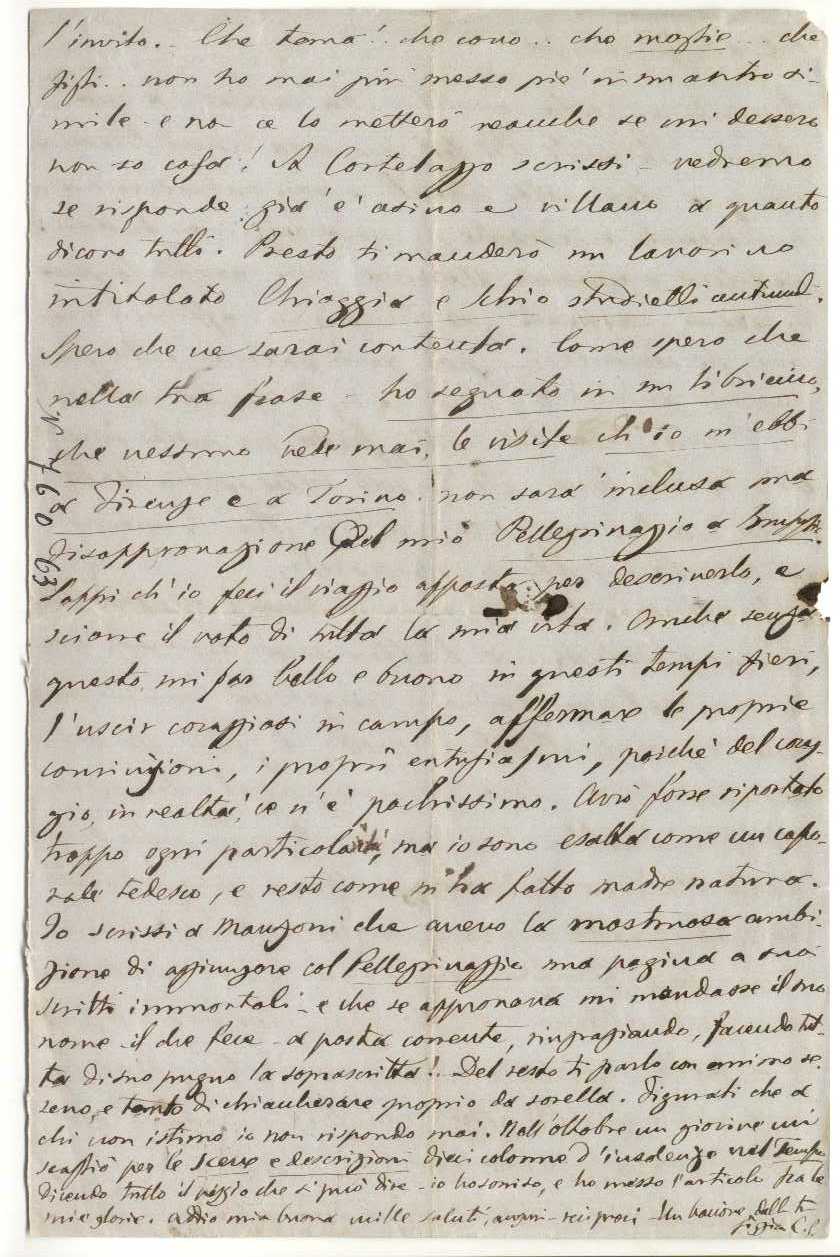 l'invito. - Che tema! che covo.. che moglie... che
figli.. non ho mai più messo piè in un antro si-
mile - e non ce lo metterò neanche se mi dessero
non so cosa! A Cortelazzo scrissi - vedremo
se risponde già è asino e villano a quanto
dicono tutti. Presto ti manderò un lavorino
intitolato Chioggia e Schio studietti autunnali.
Spero che ne sarai contenta. Come spero che
nella tua frase - ho segnato in un libriccino,
che nessuno vede mai, le visite ch'io m'ebbi
a Firenze e a Torino. non sarà inclusa una
disapprovazione del mio Pellegrinaggio a
Sappi ch'io feci il viaggio apposta per descriverlo, e
sciorre il voto di tutta la mia vita. Anche senza
questo, mi par bello e buono in questi tempi fieri,
l'uscir coraggiosi in campo, affermare le proprie
convinzioni, i proprii entusiasmi, poichè del corag-
gio, in realtà, ce n'è pochissimo. Avrò forse riportato
troppo ogni particolarità, ma io sono esatta come un capo-
rale tedesco, e resto come m'ha fatto madre natura.
Io scrissi a Manzoni che avevo la mostruosa ambi-
zione di aggiungere col Pellegrinaggio una pagina a suoi
scritti immortali - e che se approvava mi mandasse il suo
nome - il che fece - a posta corrente, ringraziando, facendo tut-
ta di suo pugno la soprascritta! Del resto ti parlo con animo se-
reno, e tento di chiacherare proprio da sorella. Figurati che a
chi non istimo io non rispondo mai. Nell'ottobre un giovine mi
scagliò per le Scene e descrizioni dieci colonne d'insolenze nel Tempo
dicendo tutto il peggio che si può dire - io ho sorriso, e ho messo l'articolo fra le
mie glorie. Addio mia buona mille saluti, auguri - reciproci - Un bacione dalla tu
C.
N. 460 63